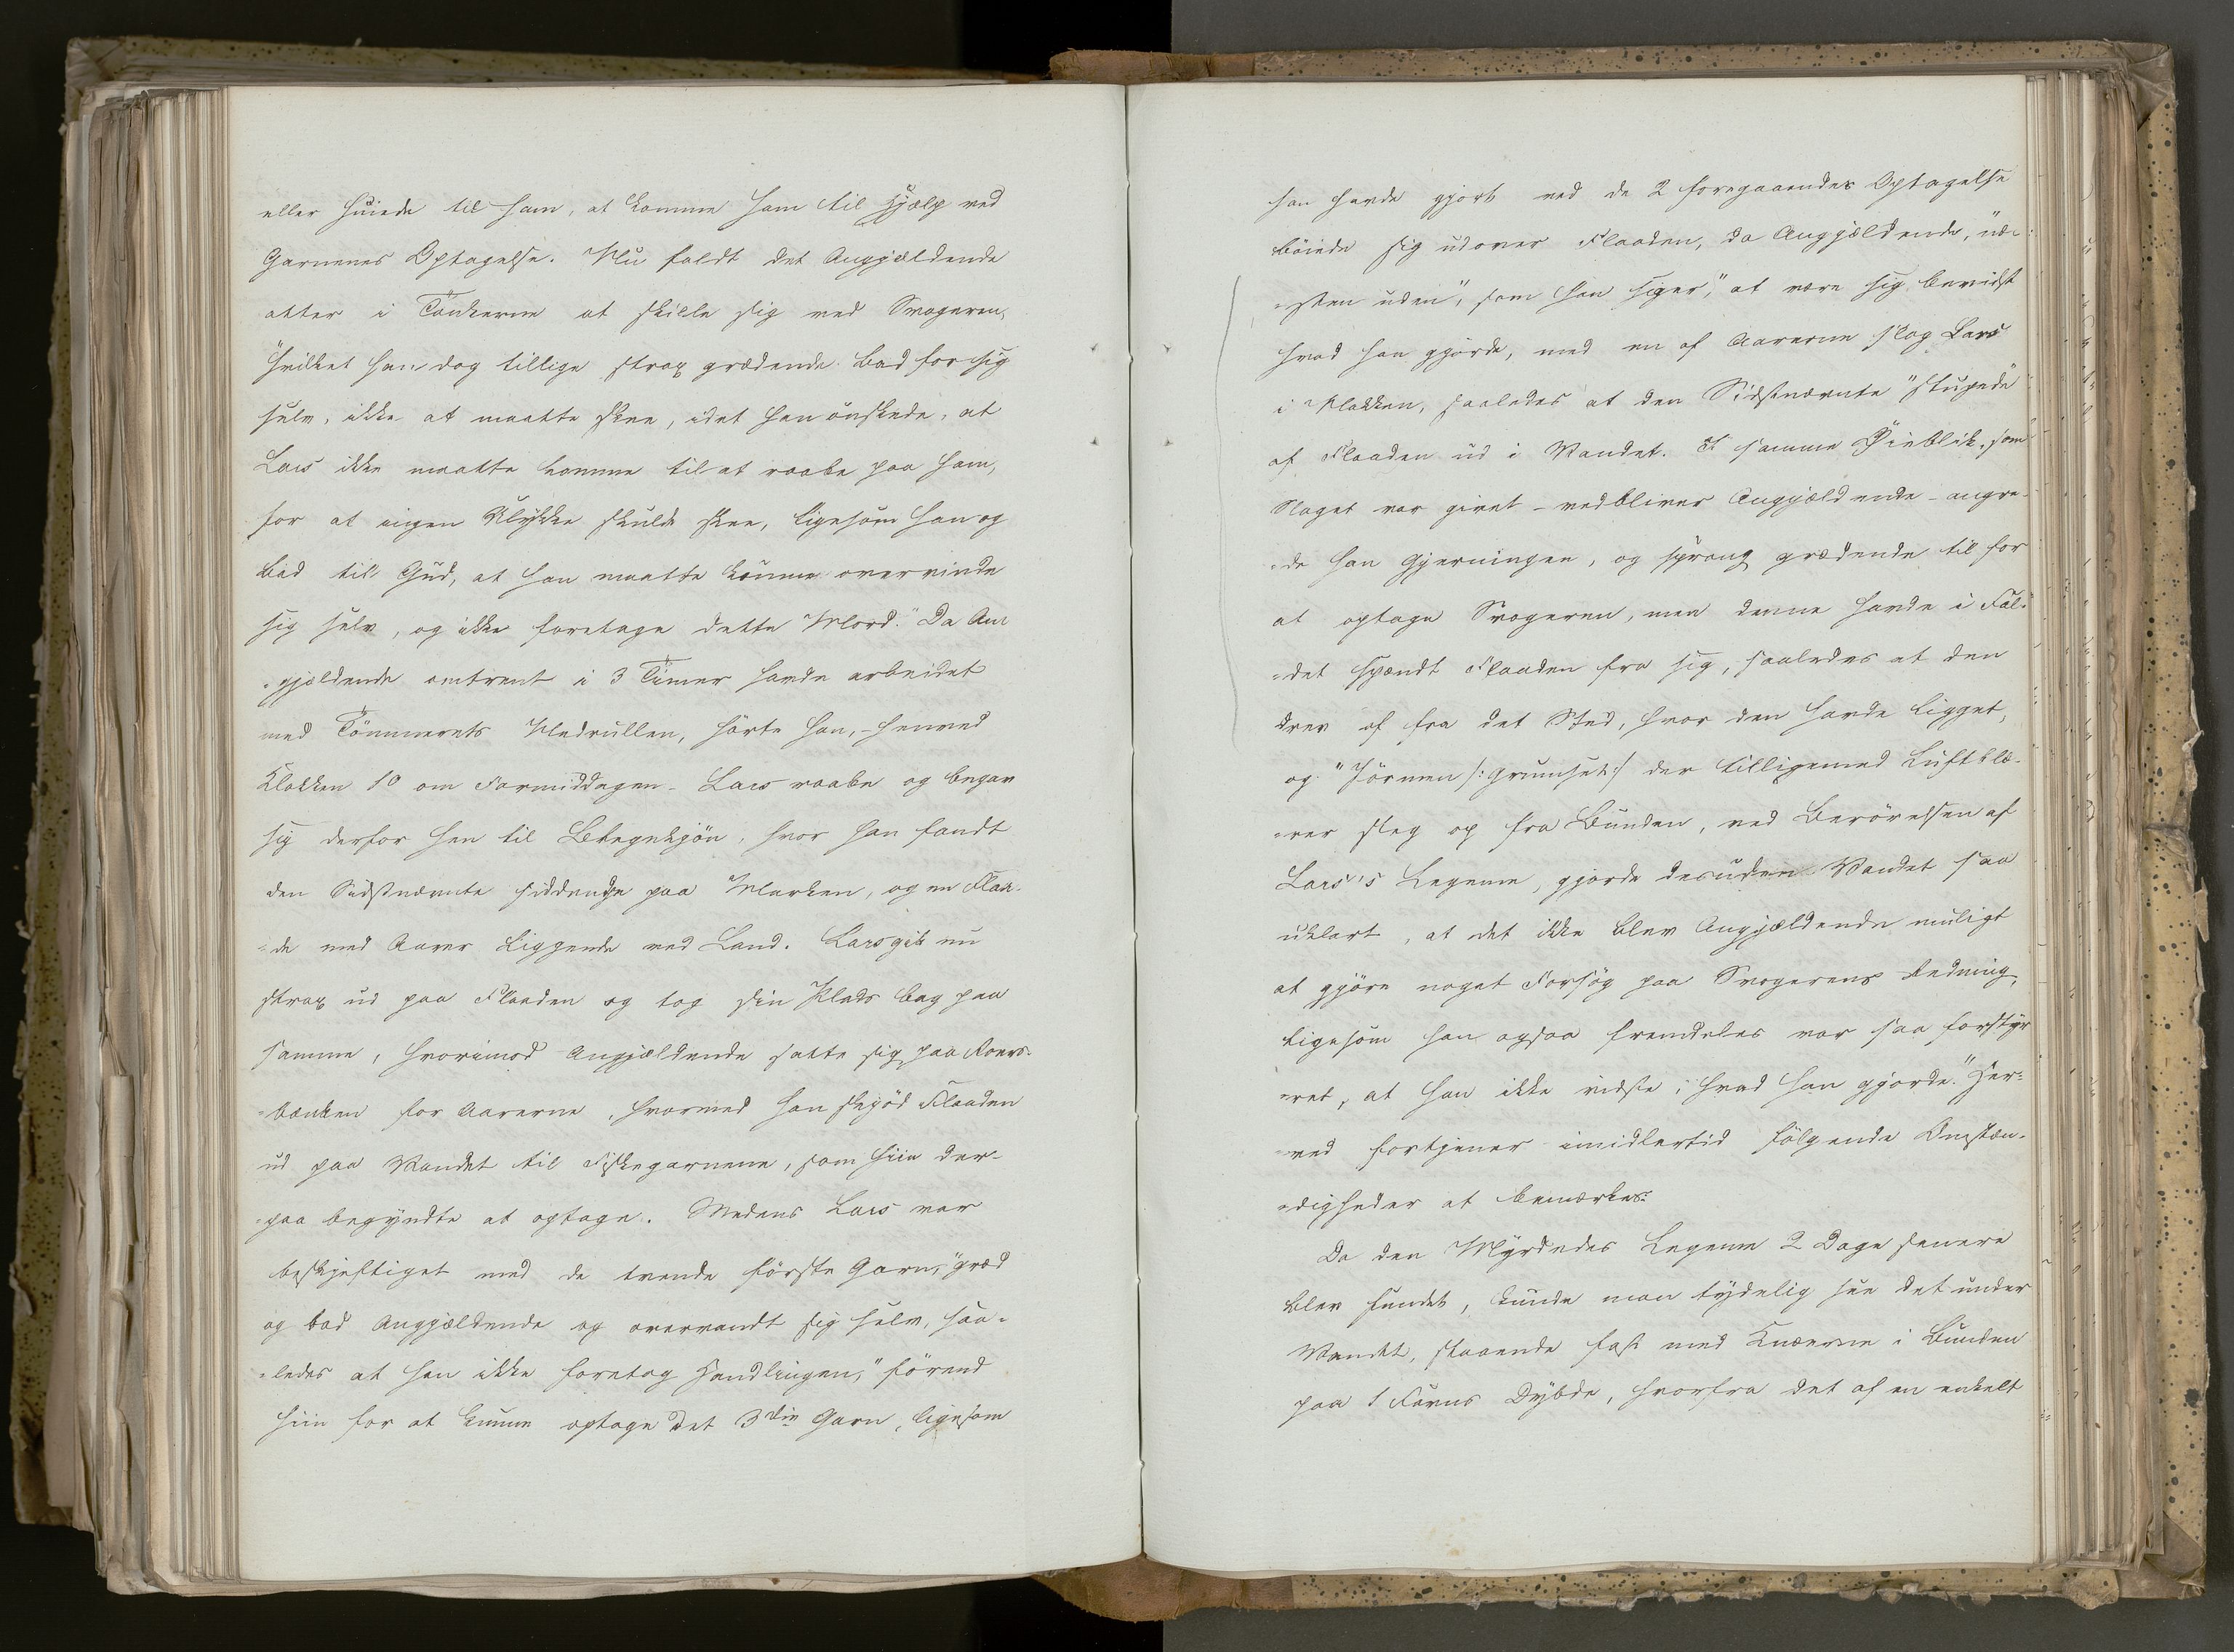 eller huiede til ham, at komme ham til Hjælp ved
Garnenes Optagelse. Nu faldt det Angjældende
atter i Tankerne at skille sig ved Svogeren,
"hvilket han dog tillige strax grædende bad for sig
selv, ikke at maatte skee, idet han ønskede, at
Lars ikke maatte komme til at raabe paa ham,
for at ingen Ulykke skulde skee, ligesom han og
bad til Gud, at han maatte kunne overvinde
sig selv, og ikke foretage dette Mord." Da An
-gjældende omtrent i 3 Timer havde arbeidet
med Tømmerets Nedrullen, hørte han, - henved
Klokken 10 om Formiddagen - Lars raabe og begav
sig derfor hen til Btegnkjøn, hvor han fandt
den Sidstnævnte siddende paa Marken, og en Flaa-
=de med Aarer liggende ved Land. Lars gik nu
strax ud paa Flaaden og tog sin Plads bag paa
samme, hvorimod Angjældende satte sig paa Roers-
=bænken for Aarerne, hvormed han skjød Flaaden
ud paa Vandet til Fiskegarnene, som hiin der-
=paa begyndte at optage. Medens Lars var
beskjeftiget med de tvende første Garn, "græd
og bad Angjældende og overvandt sig selv, saa-
=ledes at han ikke foretog Handlingen," førend
hiin for at kunne optage det 3die Garn, ligesom
han havde gjort ved de 2 foregaaendes Optagelse
bøiede sig udover Flaaden, da Angjældende, "næ-
=sten uden", som han siger, "at være sig bevidst
hvad han gjorde, med en af Aarerne slog Lars
i Nakken, saaledes at den Sidstnævnte "stupede"
af Flaaden ud i Vandet. I samme Øieblik, som
Slaget var givet - vedbliver Angjældende - angre-
=de han Gjerningen, og sprang grædende til for
at optage Svogeren, men denne havde i Fal-
=det spændt Flaaden fra sig, saaledes at den
drev af fra det Sted, hvor den havde ligget,
og "Jørmen /:grumset:/ der tilligemed Luftblæ-
=rer steg op fra Bunden, ved Berørelsen af
Lars's Legeme, gjorde desuden Vandet saa
uklart, at det ikke blev Angjældende muligt
at gjøre noget Forsøg paa Svogerens Redning,
ligesom han ogsaa fremdeles var saa forstyr
=ret, at han ikke vidste, hvad han gjorde." Her-
=ved fortjener imidlertid følgende Omstæn-
=digheder at bemærkes:
Da den Myrdedes Legeme 2 Dage senere
blev fundet, kunde man tydelig see det under
Vandet, staaende fast med Knæerne i Bunden
paa 1 Favns Dybde, hvorfra det af en enkelt